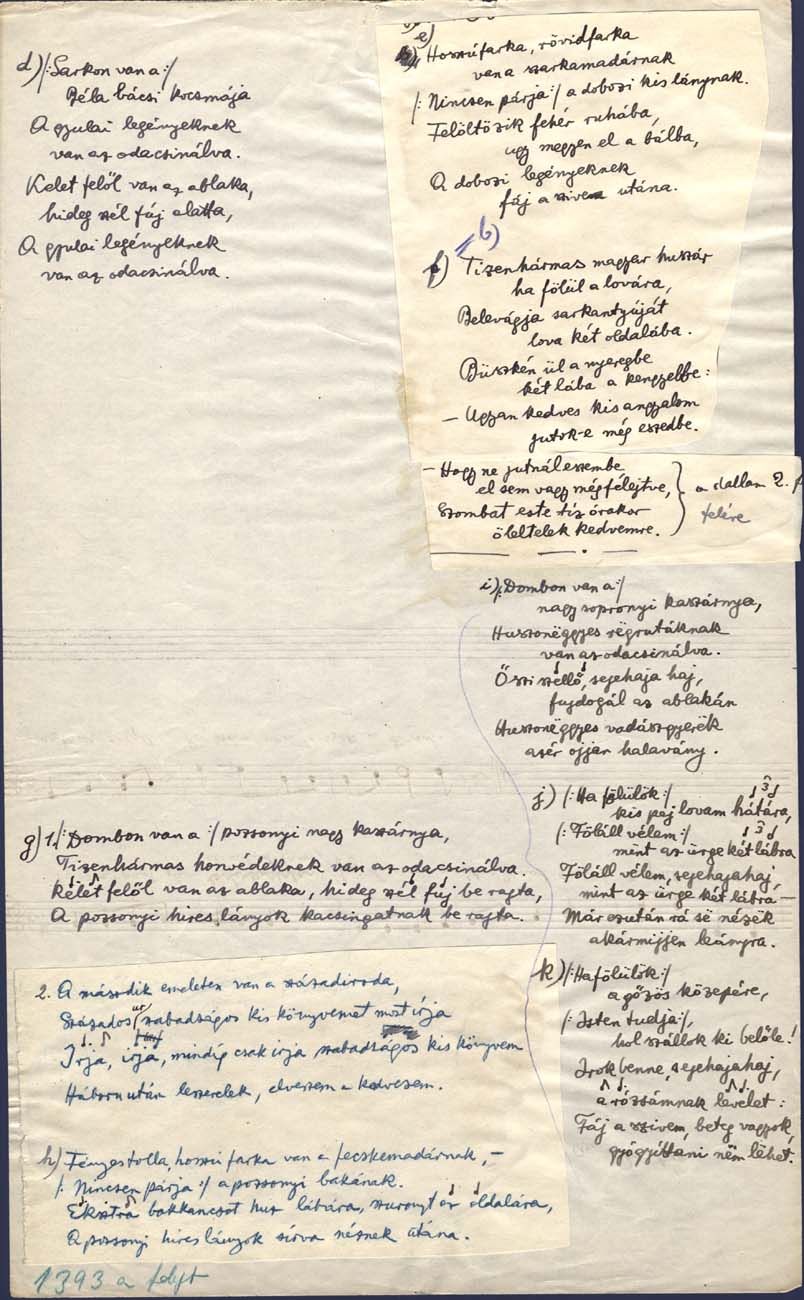 d) /: Sarkon van a :/
Béla bácsi kocsmája
A gyulai legényeknek
van az odacsinálva.
Kelet felől van az ablaka,
hideg szél fúj alatta,
A gyulai legényeknek
van az odacsinálva.
e)
Hosszúfarka, rövidfarka
van a szarkamadárnak
/: Nincsen párja :/ a dobozi kislánynak.
Felöltözik fehér ruhába,
ugy megyen el a bálba,
A dobozi legényeknek
fáj a szivem utána.
b)
f) Tizenhármas magyar huszár
ha fölül a lovára,
Belevágja sarkantyúját
lova két oldalába.
Büszkén ül a nyeregbe
két lába a kengyelbe:
— Ugyan kedves kisangyalom
jutok-e még eszedbe.
— Hogy ne jutnál eszembe
el sem vagy még félejtve,
Szombat este tíz órakor
öleltelek kedvemre.
a dallam 2.
felére
i) /: Dombon van a :/
nagy sopronyi kaszárnya,
Huszonëggyes rëgrutáknak
van az odacsinálva.
Őszi szëllő, sejehaja haj,
fujdogál az ablakán
Huszonëggyes vadászgyerëk
azér ojjan halavány.
j) /: Ha fölülök :/
kis paj lovam hátára,
/: Föláll vélem :/
mint az ürge két lábra
Föláll vélem, sejehajahaj,
mint az ürge két lábra —
Már ezután rá së nézëk
akármijjen leányra.
g) 1. /: Dombon van a :/ pozsonyi nagy kaszárnya,
Tizenhármas honvédeknek van az odacsinálva.
Kelet felől van az ablaka, hideg szél fúj be rajta,
A pozsonyi hires lányok kacsingatnak be rajta.
k) /: Ha fölülök :/
a gőzös közepére,
/: Isten tudja :/,
hol szállok ki belőle!
Irok benne, sejehajahaj,
a rózsámnak levelet:
Fáj a szivem, beteg vagyok,
gyógyíttani nëm lëhet.
2. A második emeleten van a századiroda,
Százados ur szabadságos kis könyvemet most irja
Irja, irja, mindíg csak irja szabadságos kis könyvem
Háboru után leszerelek, elveszem a kedvesem.
h) Fényestolla, hosszú farka van a fecskemadárnak, —
/: Nincsen párja :/ a pozsonyi bakának.
Eksztra bakkancsot huz lábára, szuronyt az oldalára,
A pozsonyi hires lányok sirva néznek utána.
1393 a folyt